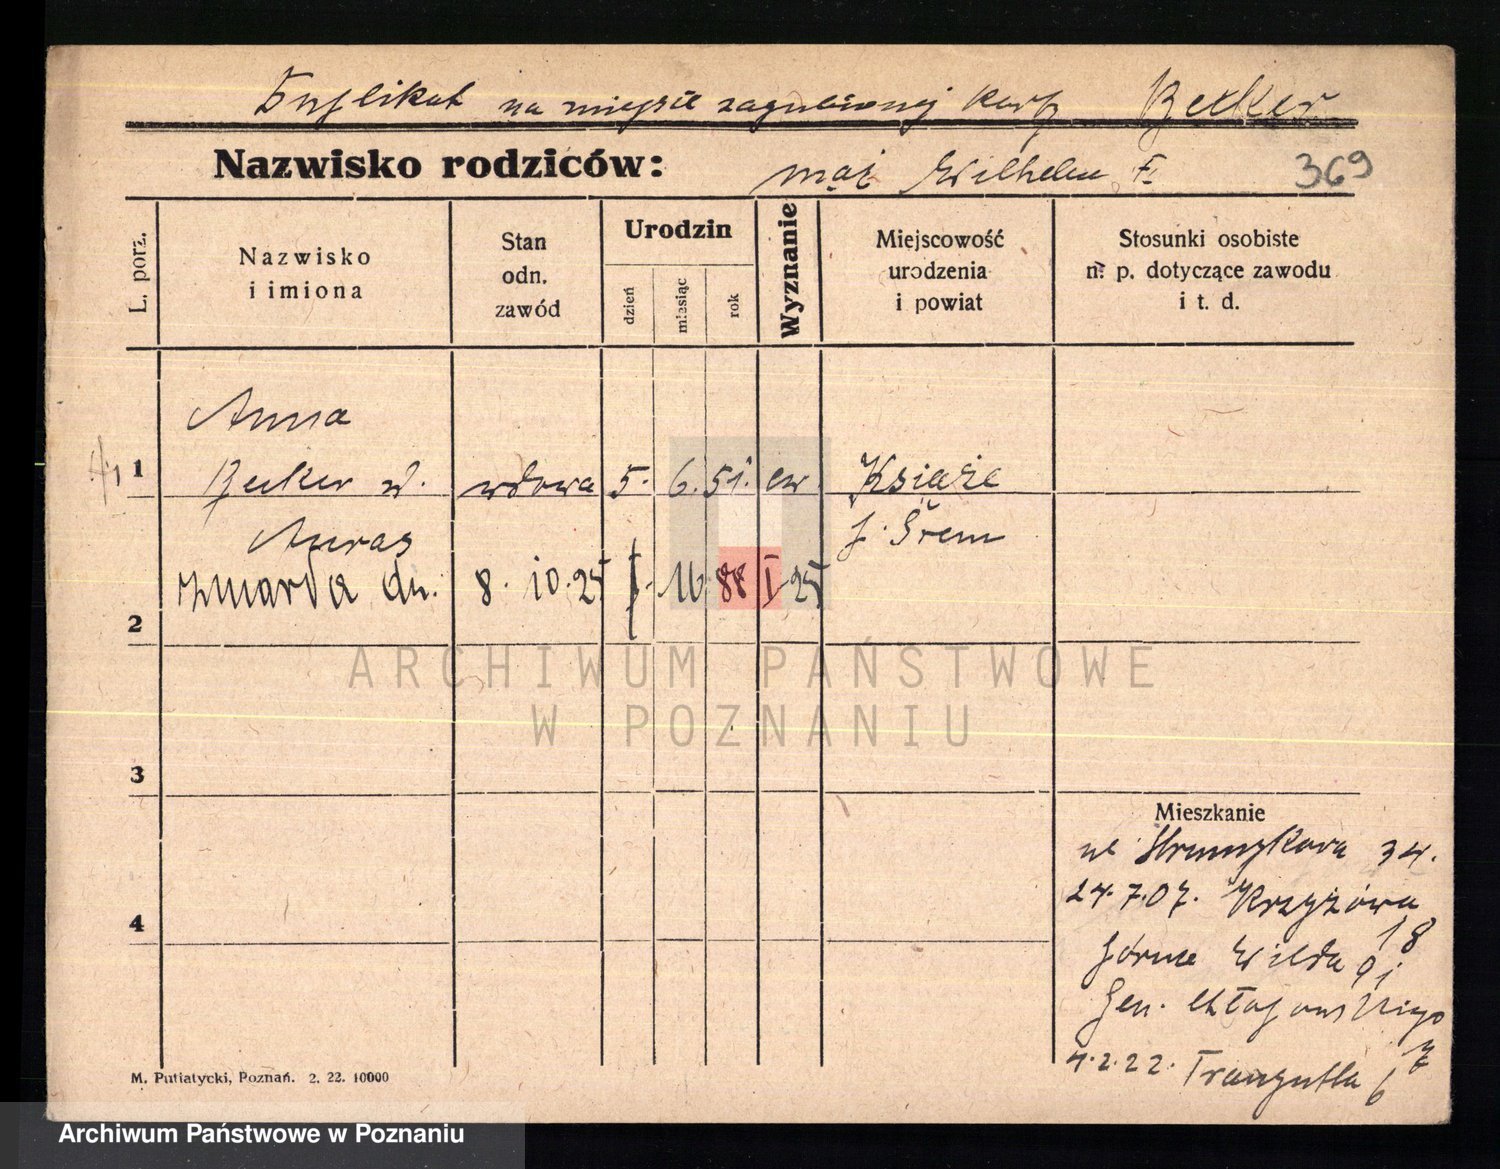 Duplikat na miejsce zagubionej karty Becker
Nazwisko rodziców: mąż Wilhelm F. 369
L. porz.
Nazwisko
i imiona
Stan
odn.
zawód
Urodzin
dzień
miesiąc
rok
Wyznanie
Miejscowość
urodzenia
i powiat
Stosunki osobiste
n. p. dotyczące zawodu
i t. d.
Anna
1 Becker w. wdowa 5. 6. 51. ew Książe
p. Śrem
zmarła dn. 8. 10. 25 88 I 25
2
ARCHIWUM PAŃSTWOWE
W POZNANIU
3
Mieszkanie
ul 34.
24.7.07. Krzyżowa
4
18
Górna Wilda 91
Gen. Chłapowskiego
4.2.22. Traugutta 6
M. Putiatycki, Poznań. 2. 22. 10000
Archiwum Państwowe w Poznaniu